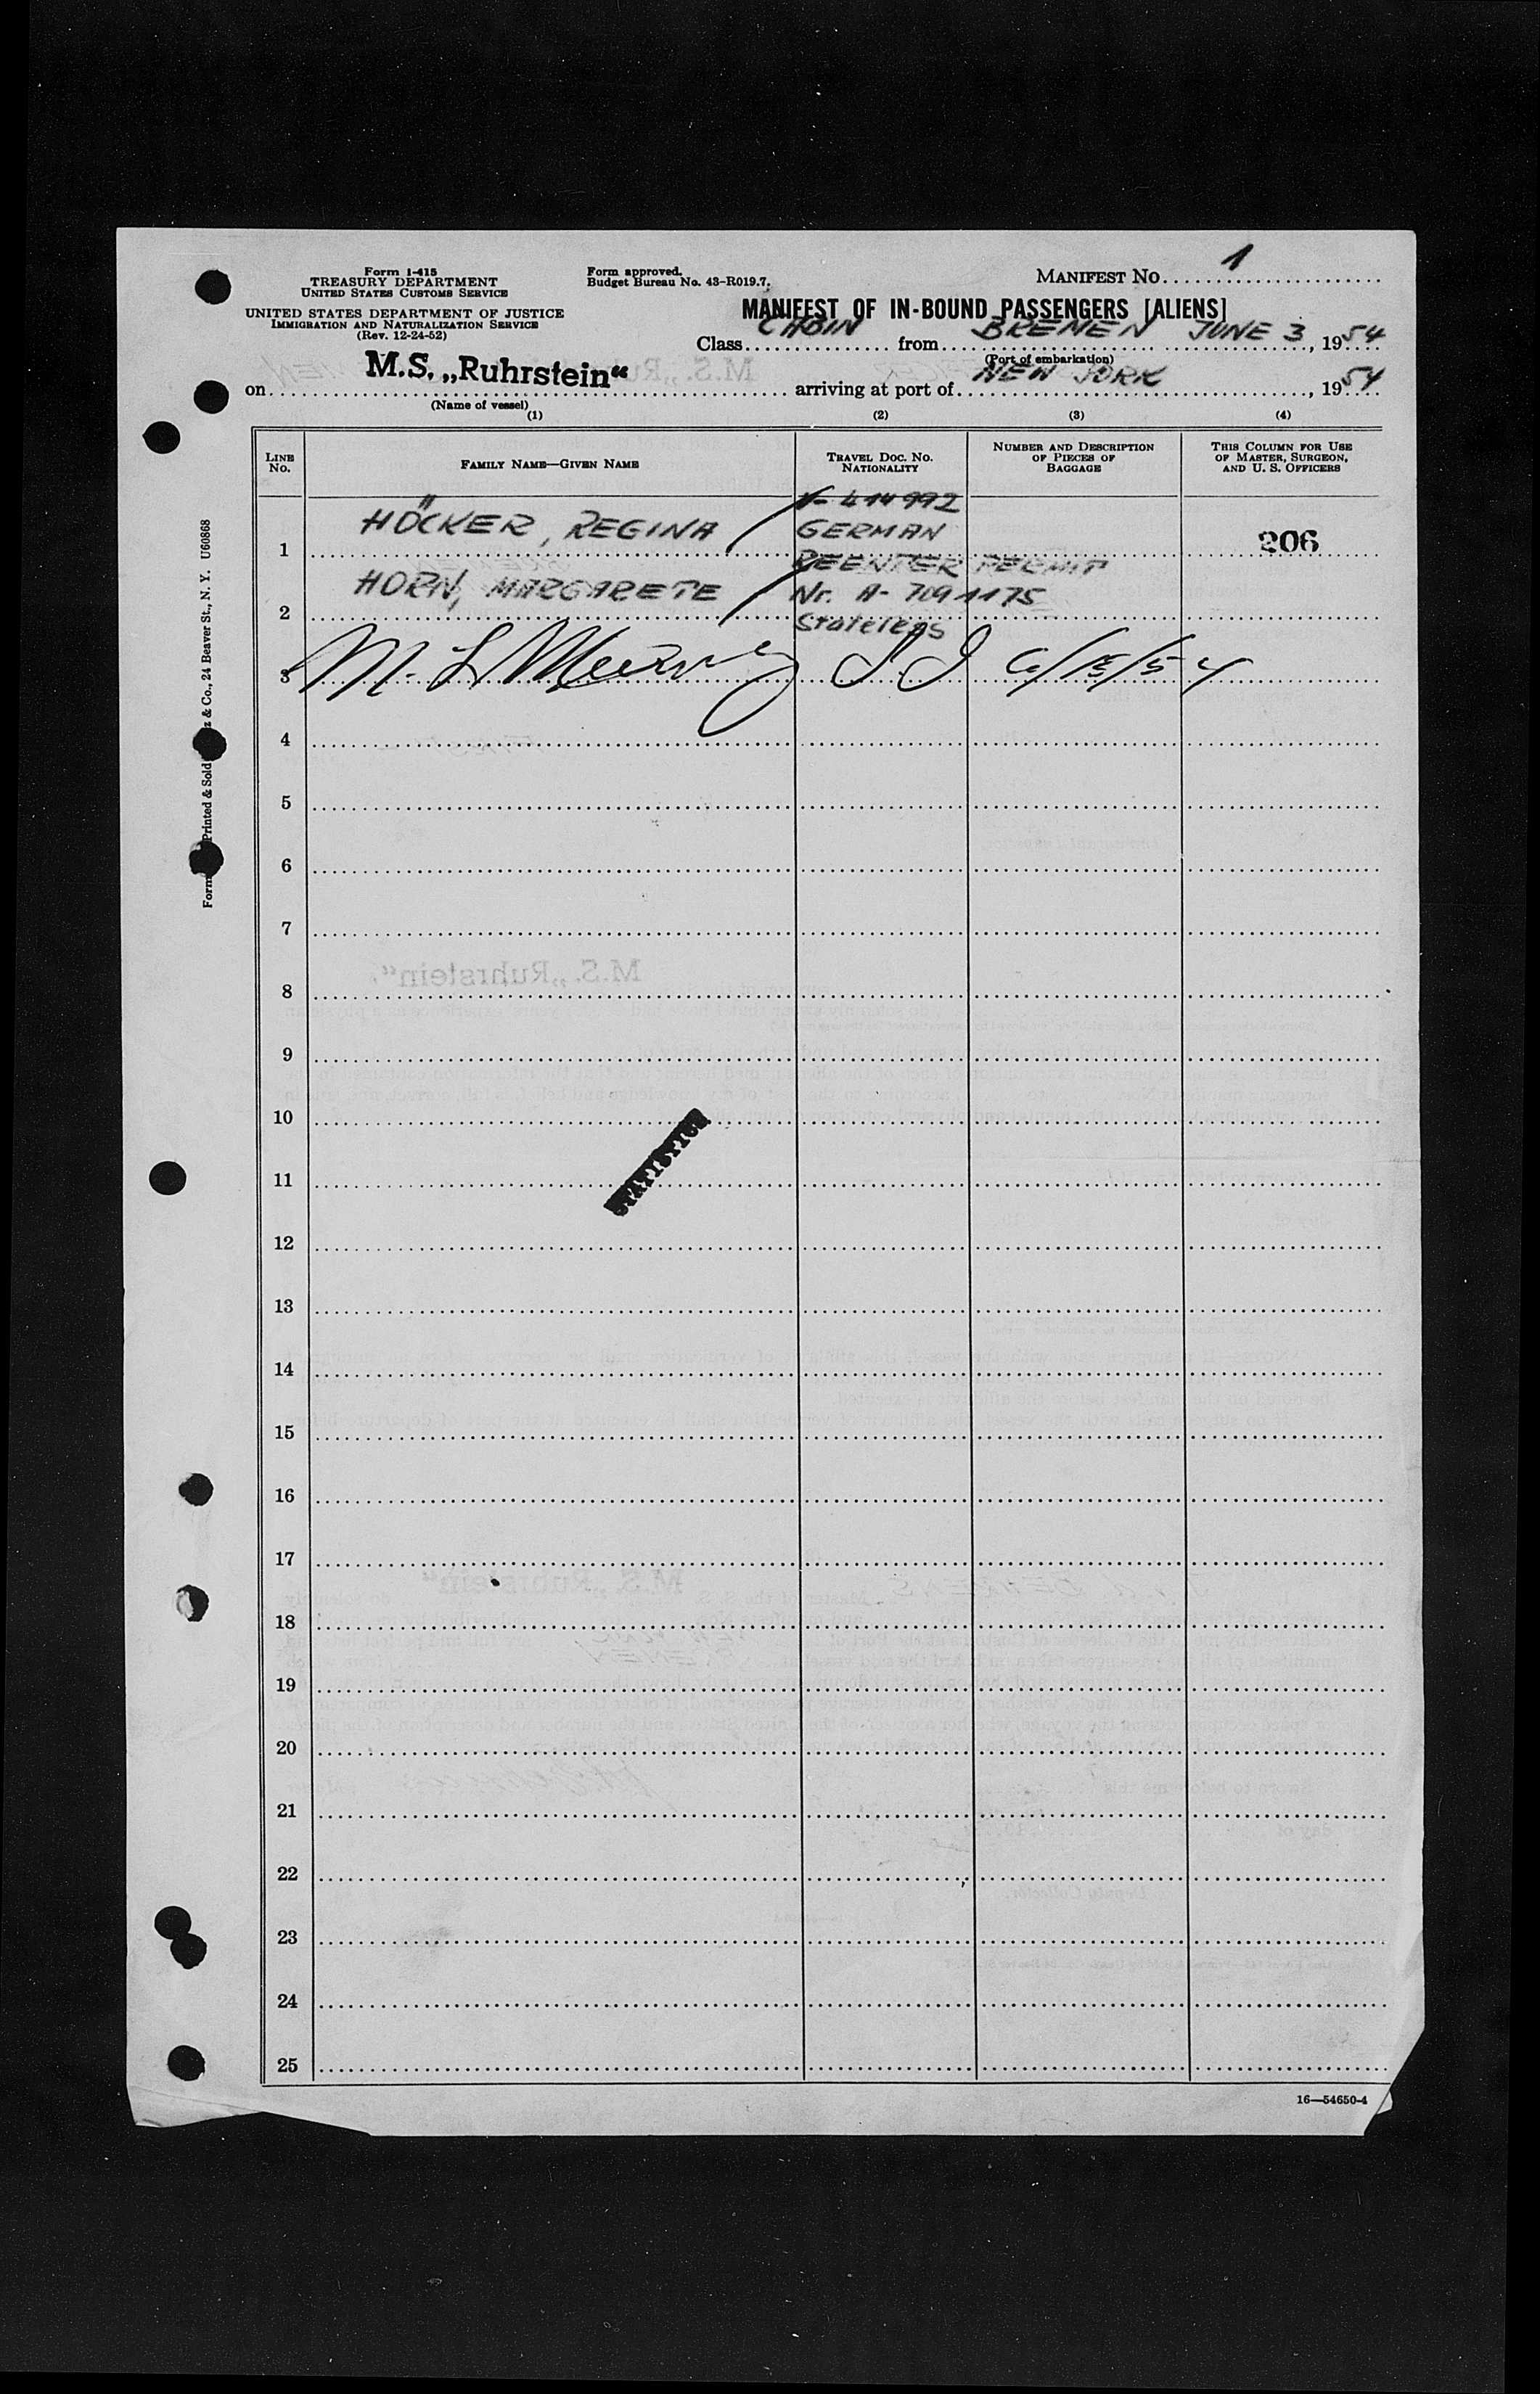 Form 1-415
TREASURY DEPARTMENT
UNITED STATES CUSTOMS SERVICE
UNITED STATES DEPARTMENT OF JUSTICE
IMMIGRATION AND NATURALIZATION SERVICE
(Rev. 12-24-52)
Form approved.
Budget Bureau No. 43-R019.7.
MANIFEST NO. 1
MANIFEST OF IN-BOUND PASSENGERS [ALIENS]
Class from BREMEN JUNE 3, 1954
(Port of embarkation)
on M.S. „Ruhrstein“ arriving at port of NEW YORK, 1954
(Name of vessel)
(1) (2) (3) (4)
LINE NO. FAMILY NAME—GIVEN NAME TRAVEL DOC. NO. NATIONALITY NUMBER AND DESCRIPTION OF PIECES OF BAGGAGE THIS COLUMN FOR USE OF MASTER, SURGEON, AND U. S. OFFICERS
414992
1 HÖCKER, REGINA GERMAN 206
REENTER PERMIT
2 HORN, MARGARETE Nr. A- 7091175
Stateless
3 6/15/54
4
5
6
7
8
9
10
11
12
13
14
15
16
17
18
19
20
21
22
23
24
25
STATISTICS
16—54650-4
Form Printed & Sold & Co., 24 Beaver St., N. Y. U60868